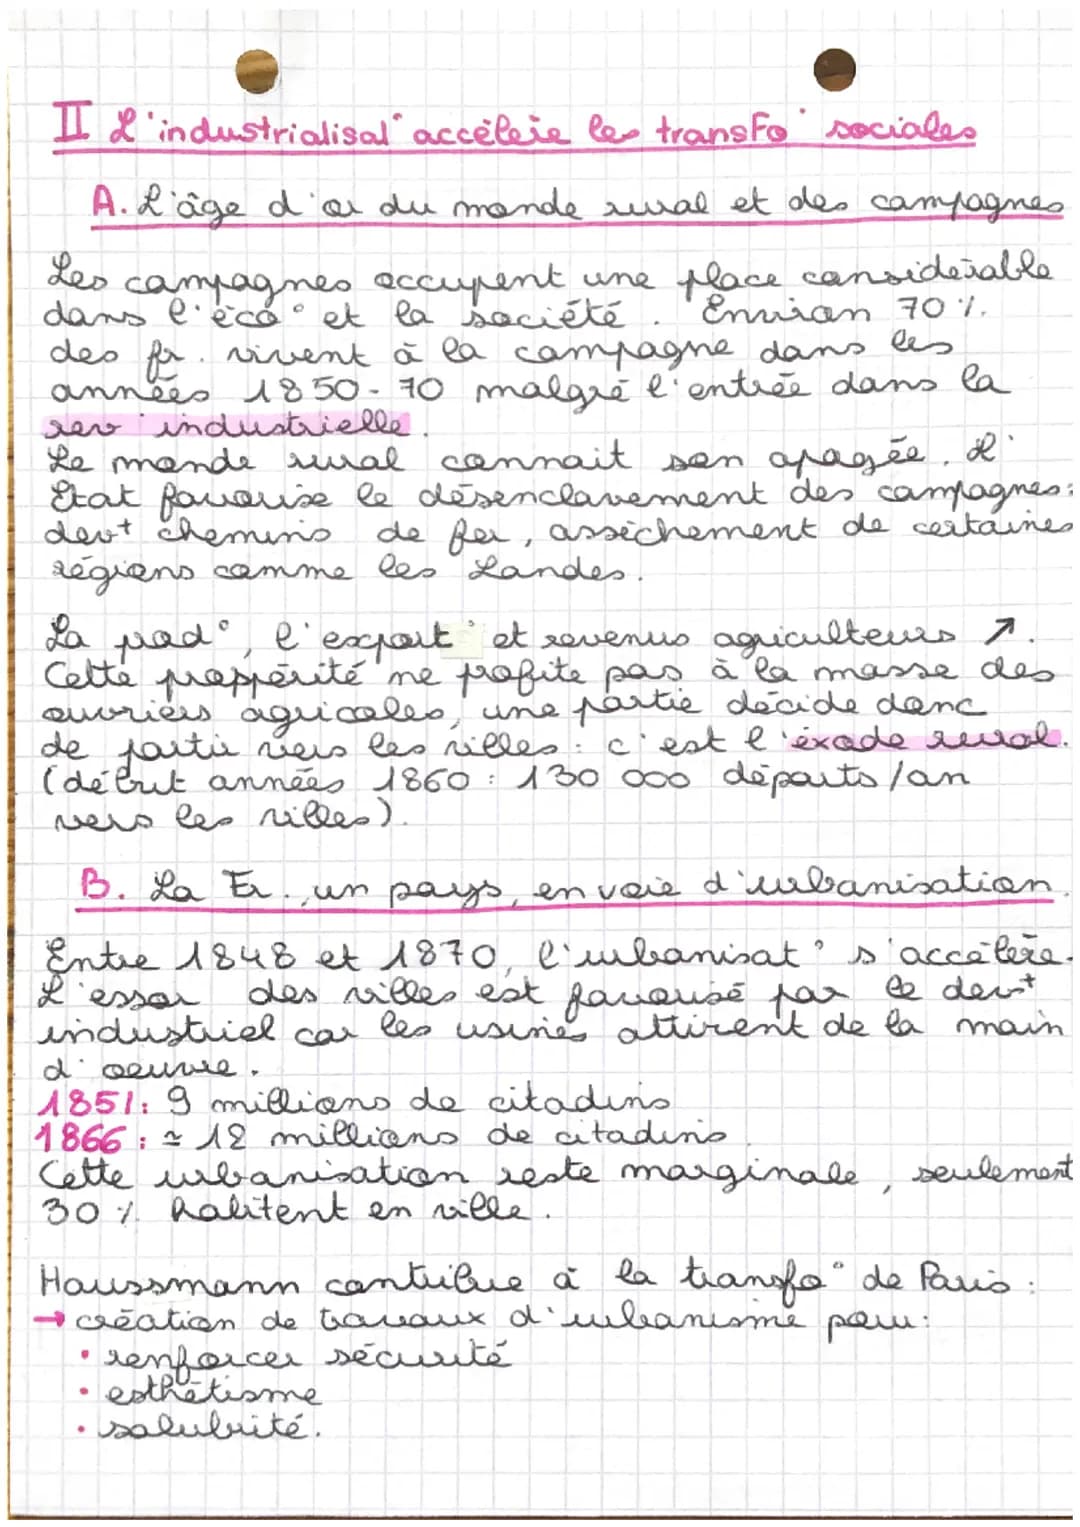 II L'industrialisat° accélère les transfo° sociales
A. L'âge d'or du monde rural et des campagnes
Les campagnes occupent une place considérable
dans l'éco° et la société. Environ 70%
des fr. vivent à la campagne dans les
années 1850-70 malgré l'entrée dans la
rev° industrielle.
Le monde rural connait son apogée. L'
Etat favorise le désenclavement des campagnes:
devt chemins de fer, assèchement de certaines
régions comme les Landes.
La prod°, l'export° et revenus agriculteurs ↗.
Cette prospérité ne profite pas à la masse des
ouvriers agricoles, une partie décide donc
de partir vers les villes : c'est l'éxode rural.
(début années 1860 : 130 000 départs/an
vers les villes).
B. La Fr., un pays en voie d'urbanisation.
Entre 1848 et 1870, l'urbanisat° s'accélère.
L'essor des villes est favorisé par le devt
industriel car les usines attirent de la main
d'oeuvre.
1851: 9 millions de citadins
1866 : ≃ 12 millions de citadins
Cette urbanisation reste marginale, seulement
30% habitent en ville.
Haussmann contribue à la transfo° de Paris :
→ création de travaux d'urbanisme pour:
• renforcer sécurité
• esthétisme
• salubrité.